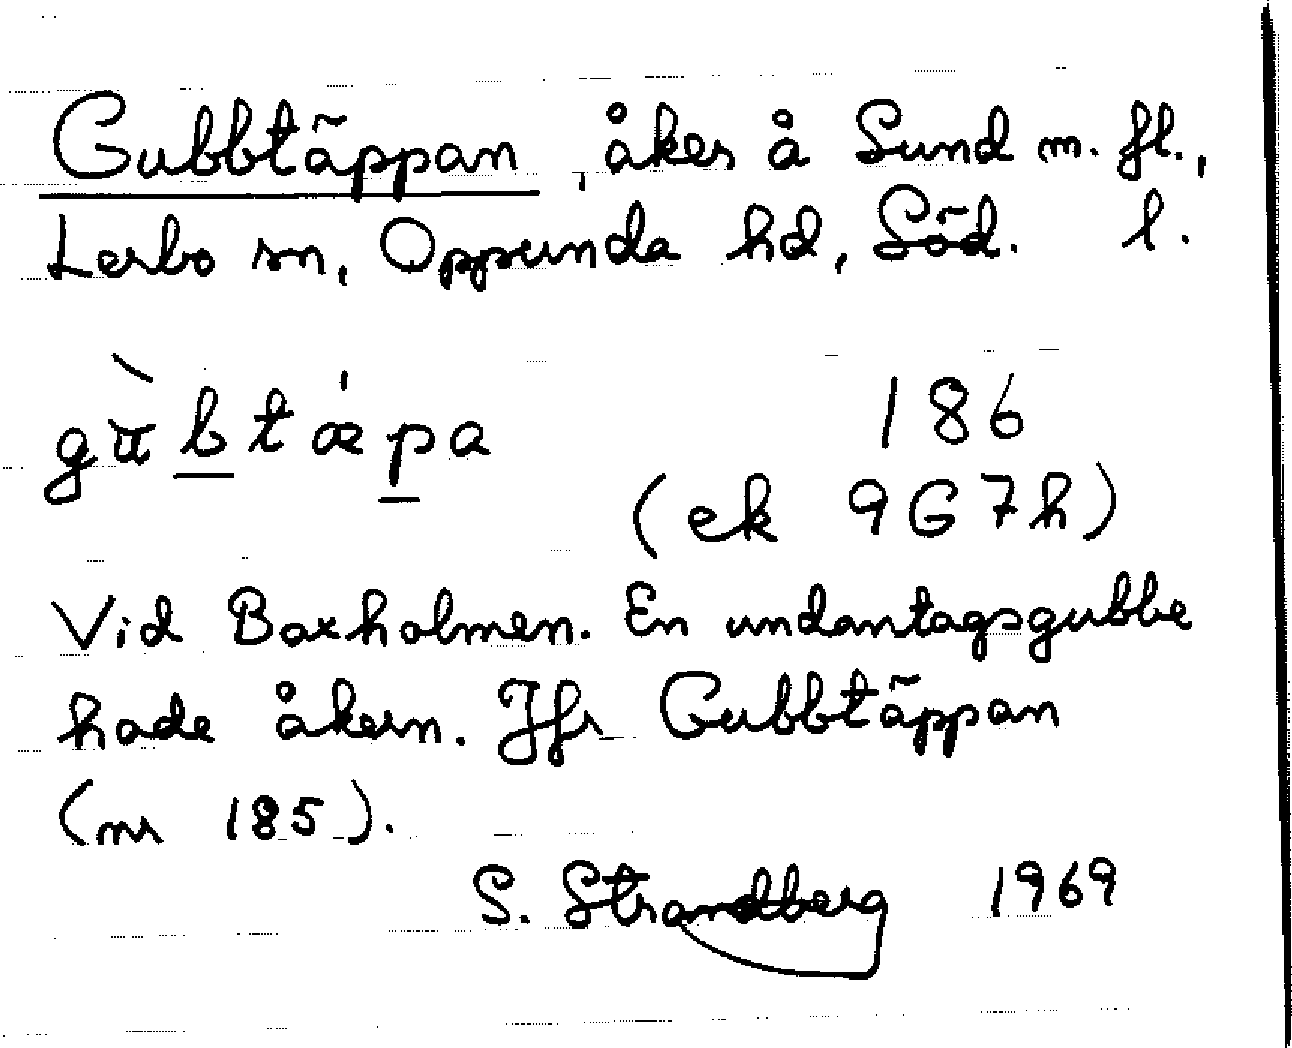 Gubbtäppan, åker å Sund m. fl.,
Lerbo sn, Oppunda hd, Söd. l.
186
(ek 9G7h)
Vid Boxholmen. En undantagsgubbe
hade åkern. Jfr Gubbtäppan
(nr 185).
S. Strandberg 1969